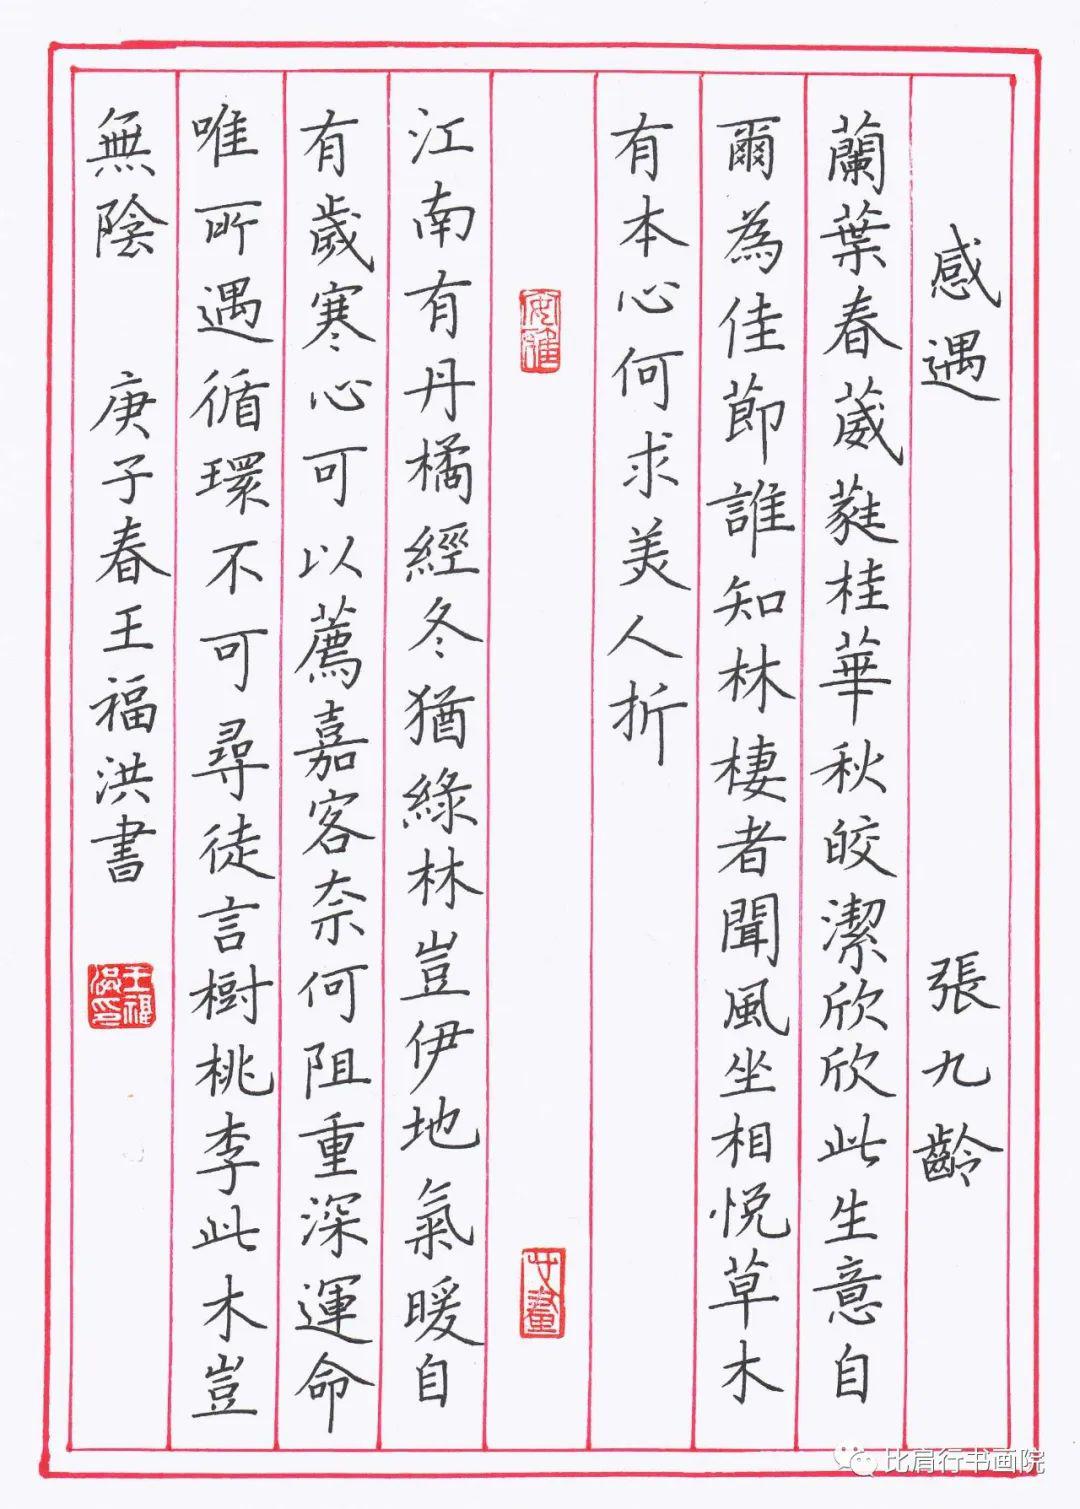 感遇 張九齡
蘭葉春葳蕤桂華秋皎潔欣欣此生意自
爾為佳節誰知林棲者聞風坐相悅草木
有本心何求美人折
江南有丹橘經冬猶綠林豈伊地氣暖自
有歲寒心可以薦嘉客奈何阻重深運命
唯所遇循環不可尋徒言樹桃李此木豈
無陰 庚子春王福洪書
王福洪印
比肩行书画院